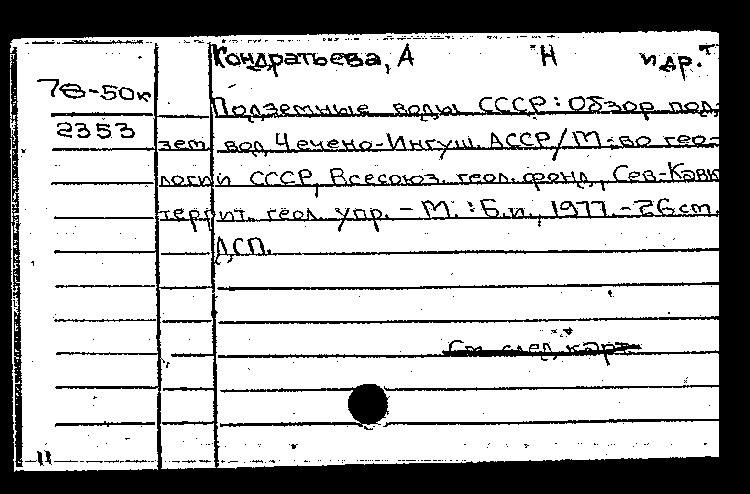 Кондратьева, А Н и др.
78-50к
Подземные воды СССР: Обзор под-
2353
зем. вод Чечено-Ингуш. АССР/М-во гео-
логии СССР, Всесоюз. геол. фонд, Сев-Кавк
террит. геол. упр. - М. : Б.и., 1977. - 26 см.
ДСП.
См. след. карт
11